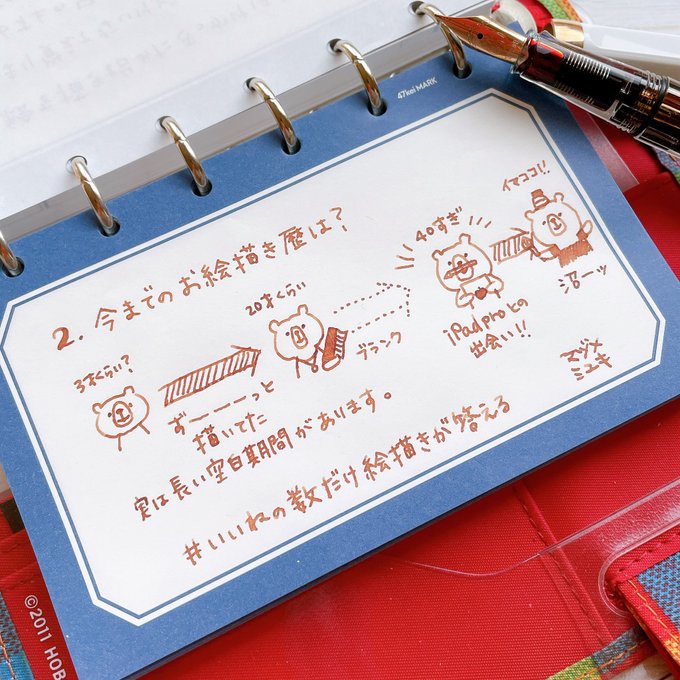 47kei MARK
2. 今までのお絵描き歴は?
3才くらい?
ずーーーっと
描いてた
20才くらい
ブランク
40すぎ
iPadproとの
出会い!!
イマココ!!
沼ーッ
マツメ
ミユキ
実は長い空白期間があります。
#いいねの数だけ絵描きが答える
©2011 HOB